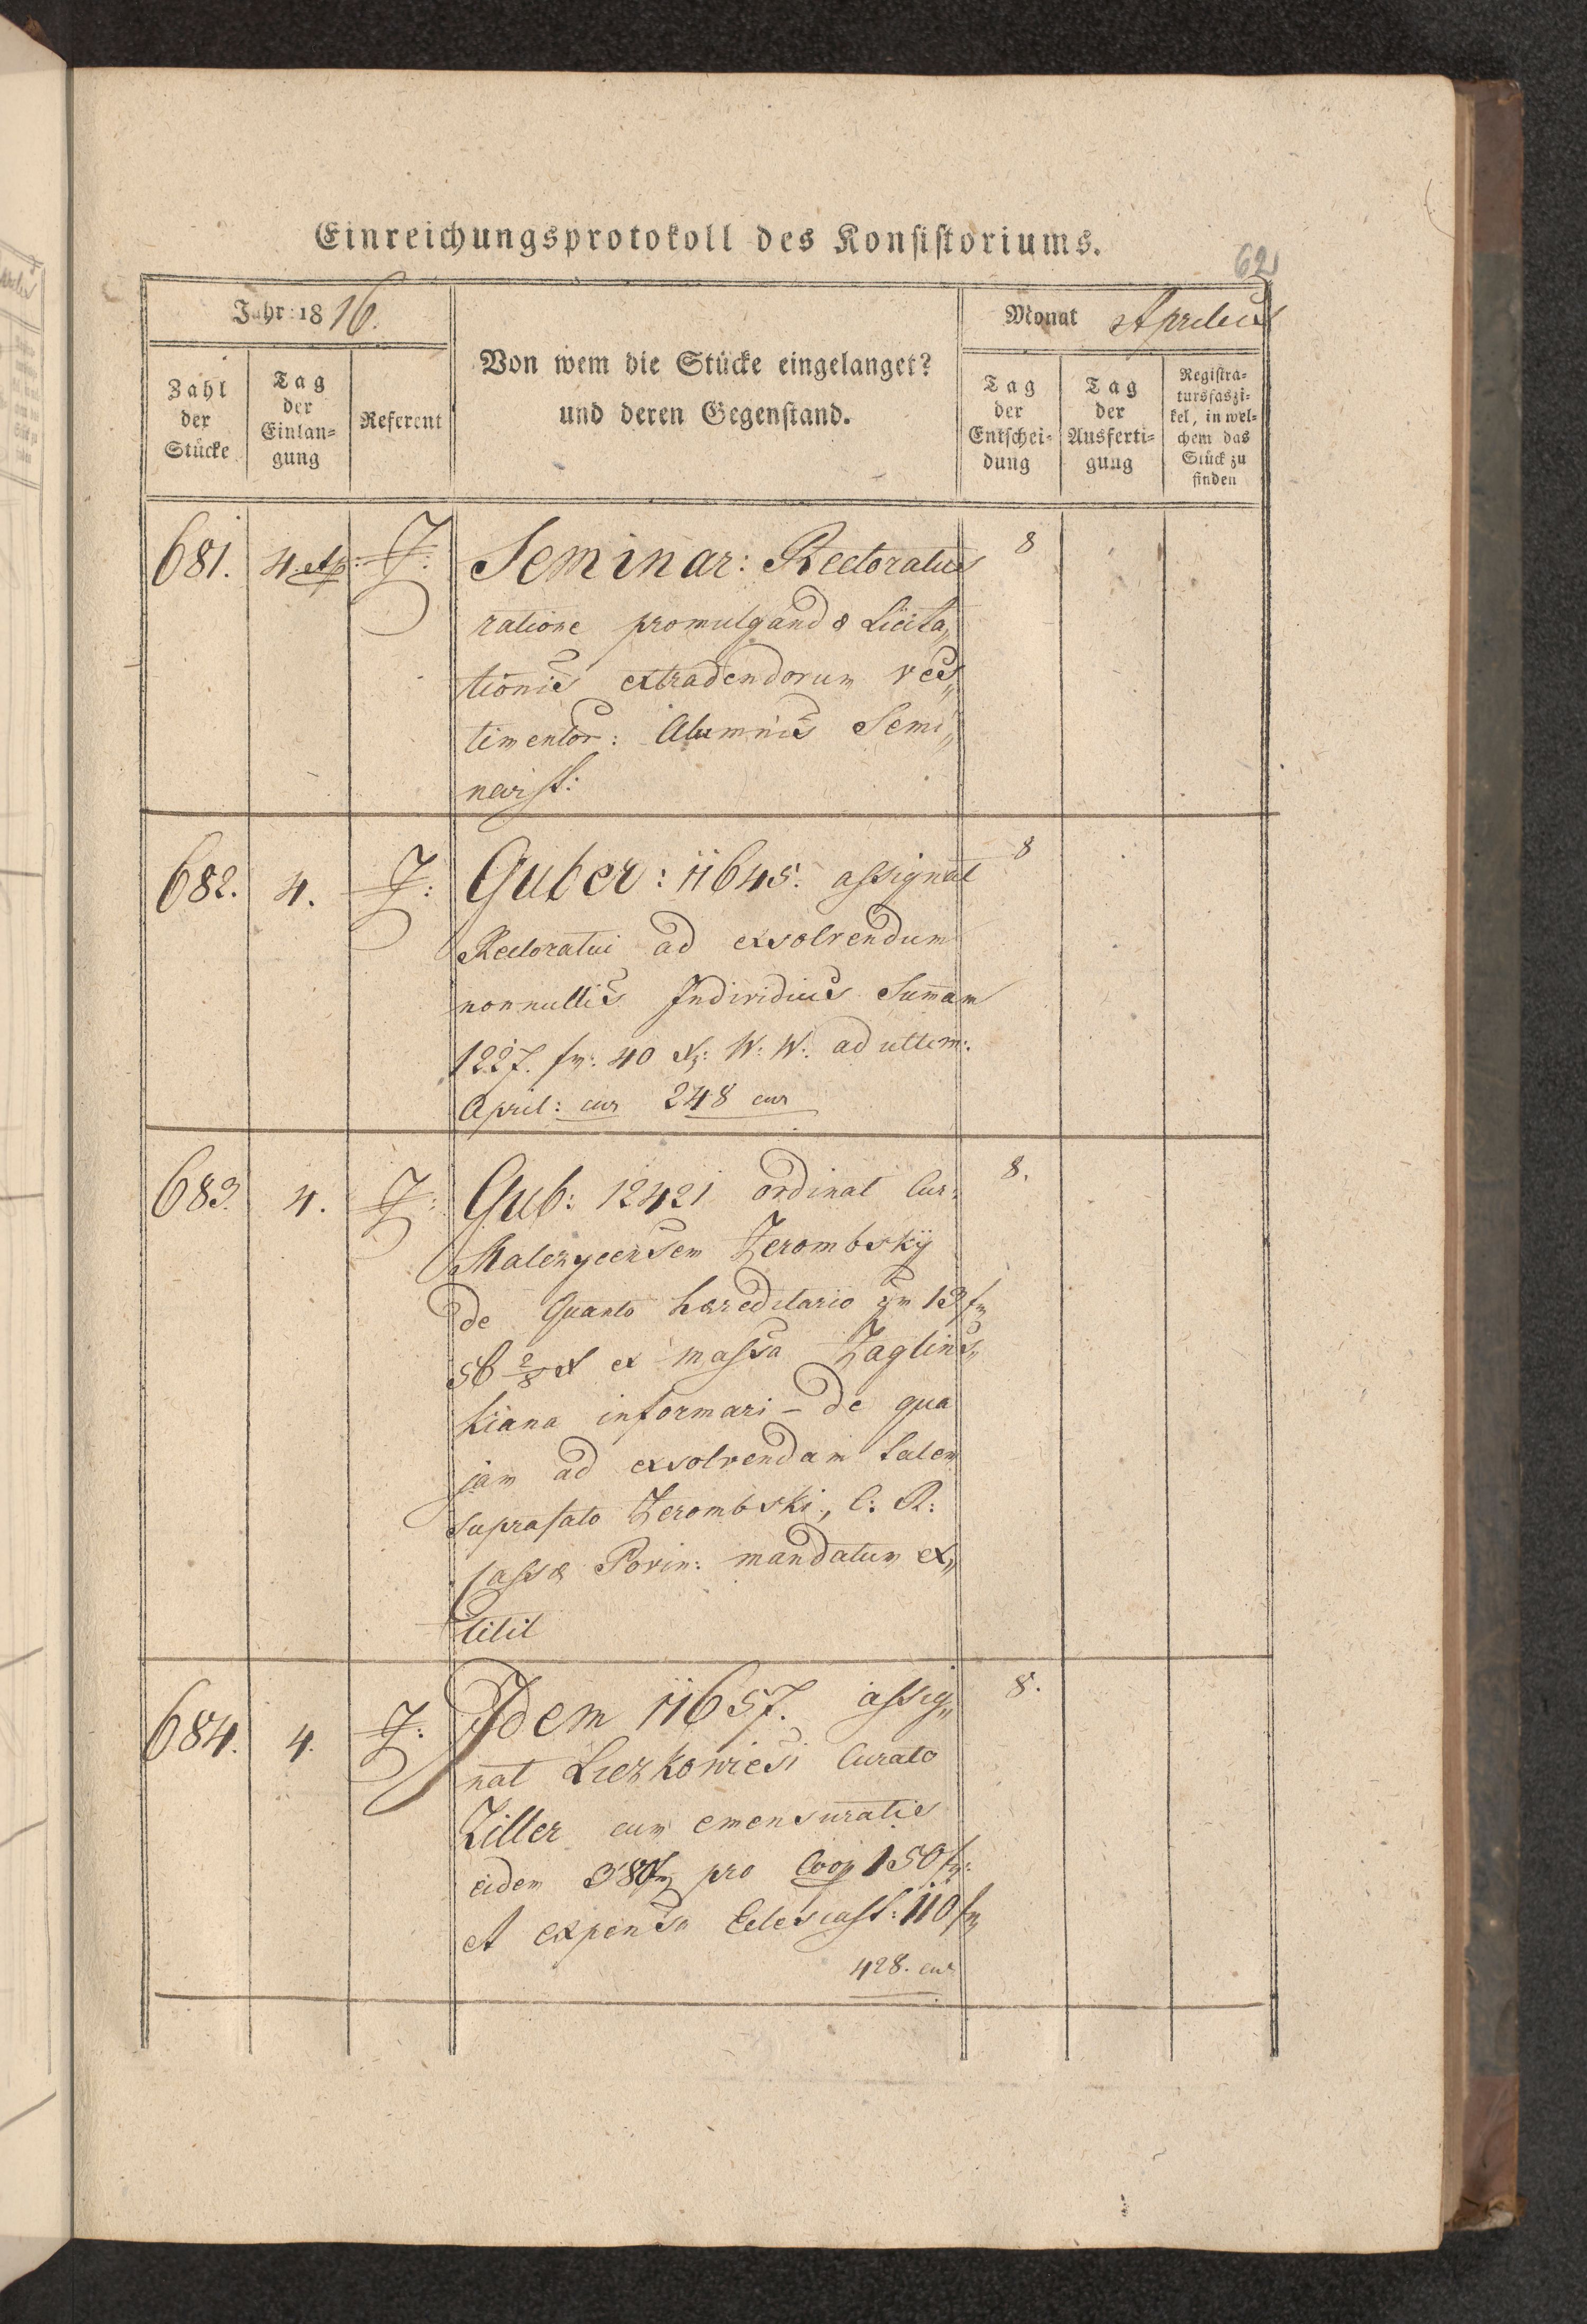 Einreichungsprotokoll des Konsistoriums.
62
Jahr 1816.
Monat Aprilis
Zahl der Stücke
Tag der Einlan= gung
Referent
Von wem die Stücke eingelanget?
und deren Gegenstand.
Tag der Entschei= dung
Tag der Ausferti= gung
Registra= tursfaszi= kel, in wel= chem das Stück zu finden
681. 4. Ap: Z: Seminar: Rectoratus 8
ratione promulgandæ Licita„
tionis extradendorum ves„
timentor: Alumnis Semi„
narist:
682. 4. Z: Guber: 11645. assignat 8
Rectoratui ad exsolvendum
nonnullis Individuis Summam
1227. fr: 40 Xr: W: W: ad ultim:
April: cur 248 cur
683. 4. Z: Gub: 12421 ordinat Cur:
8.
Zerombsky
de Quanto hæreditario 13 fr
56 2/8 X ex massa Zaglins„
kiana informari – de qua
jam ad exsolvendam talem
suprafato Zerombski, C: R:
Cassæ Povin: mandatum ex„
titit
684. 4. Z: Idem 11657. assig„ 8.
nat Curato
Ziller cum emensuratis
eidem 380 fr pro Coop 150 fr:
et expensa Eclesiast: 110 fr
428. cur